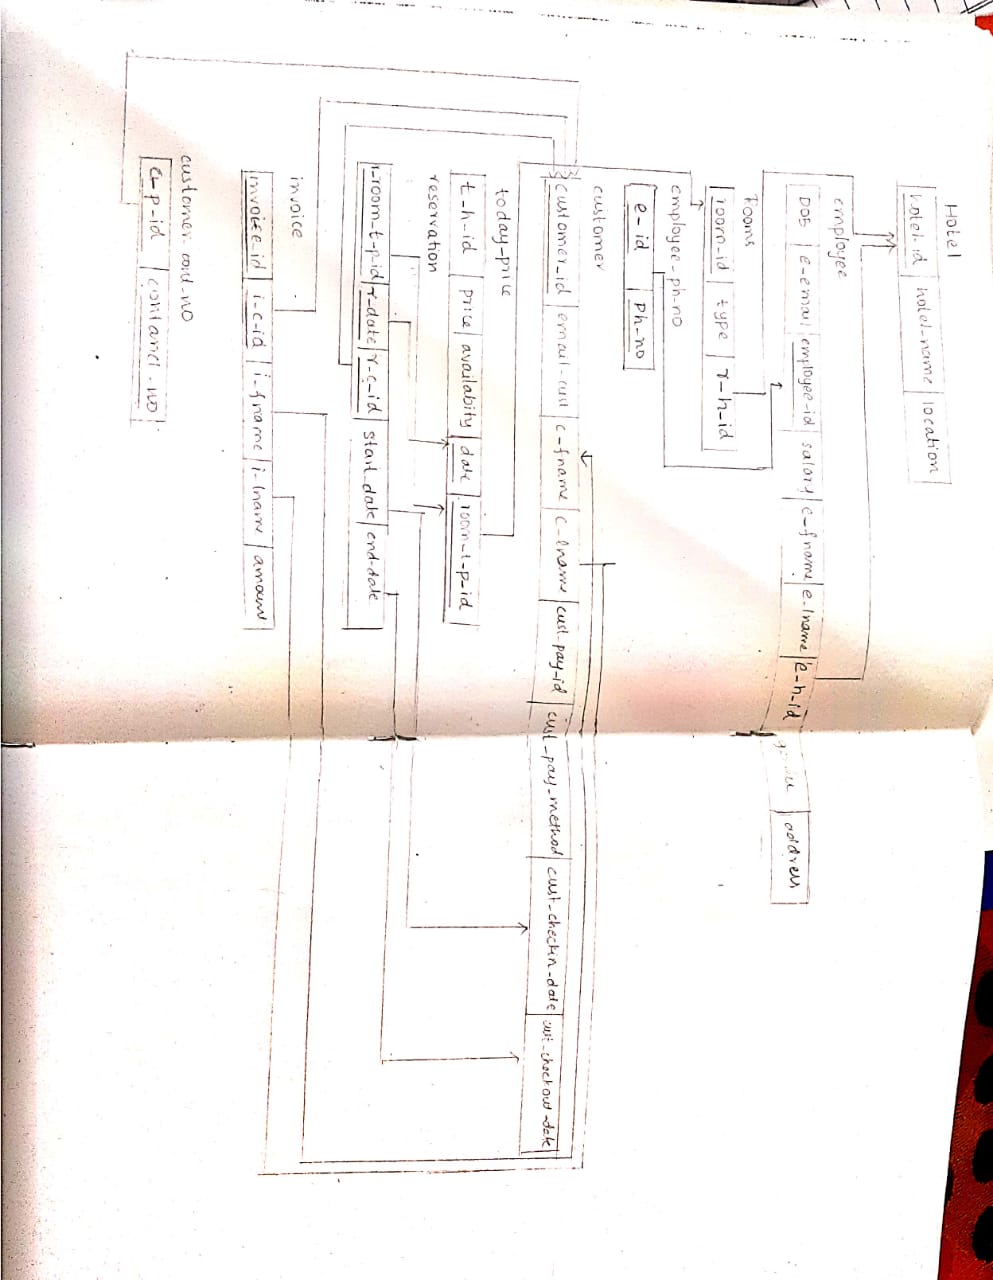 Hotel
hotel-id hotel-name location
employee
DOB e-email employee-id salary e-fname e-lname e-h-id address
rooms
room-id type r-h-id
employee-ph-no
e-id Ph-no
customer
customer_id email-cust c-fname c-lname cust-pay-id cust_pay_method cust_checkin_date cust_checkout-date
today-price
t-h-id price availabity date room-t-p-id
reservation
r-room-t-p-id r-date r-c-id start_date end-date
invoice
invoice-id i-c-id i-fname i-lname amount
customer-cont-no
c-p-id contanct-no